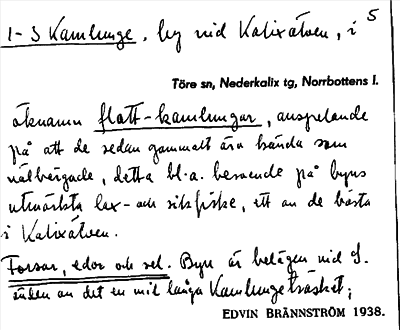 5
1-3 Kamlunge, by vid Kalixälven, i
Töre sn, Nederkalix tg, Norrbottens l.
öknamn flott-kamlungar, anspelande
på att de sedan gammalt äro kända som
välbärgade, detta bl.a. beroende på byns
utmärkta lax- och sikfiske, ett av de bästa
i Kalixälven.
Forsar, edor och sel. Byn är belägen vid S.
änden av det en mil långa Kamlungeträsket;
EDVIN BRÄNNSTRÖM 1938.